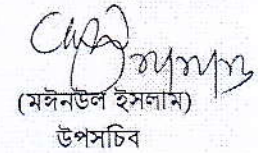 (মঈনউল ইসলাম)
উপসচিব